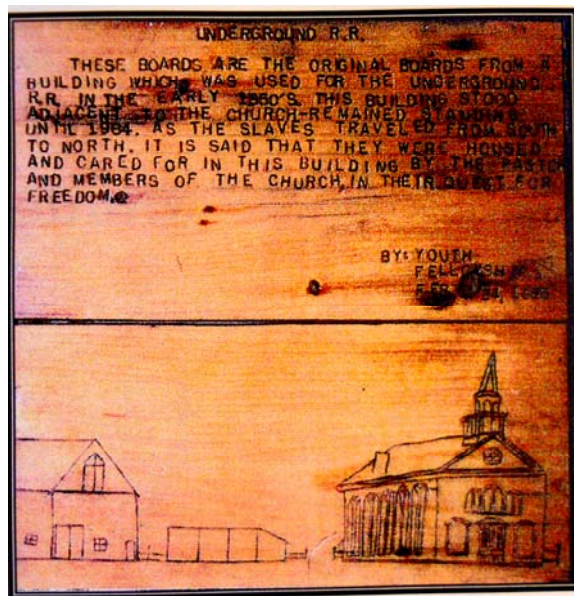 UNDERGROUND R.R.
THESE BOARDS ARE THE ORIGINAL BOARDS FROM A
BUILDING WHICH WAS USED FOR THE UNDERGROUND
R.R. IN THE EARLY 1860'S. THIS BUILDING STOOD
ADJACENT TO THE CHURCH-REMAINED STANDING
UNTIL 1964. AS THE SLAVES TRAVELED FROM SOUTH
TO NORTH. IT IS SAID THAT THEY WERE HOUSED
AND CARED FOR IN THIS BUILDING BY THE PASTOR
AND MEMBERS OF THE CHURCH, IN THEIR QUEST FOR
FREEDOM.
BY: YOUTH
FELLOWSHIP